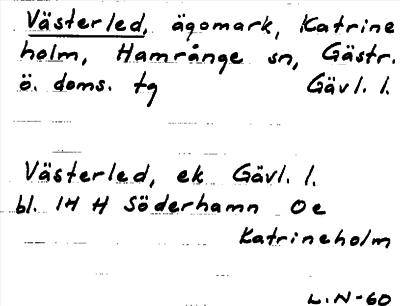 Västerled, ägomark, Katrine
holm, Hamrånge sn, Gästr.
ö. doms. tg Gävl. l.
Västerled, ek Gävl. l.
bl. 14 H Söderhamn Oe
Katrineholm
L.N-60